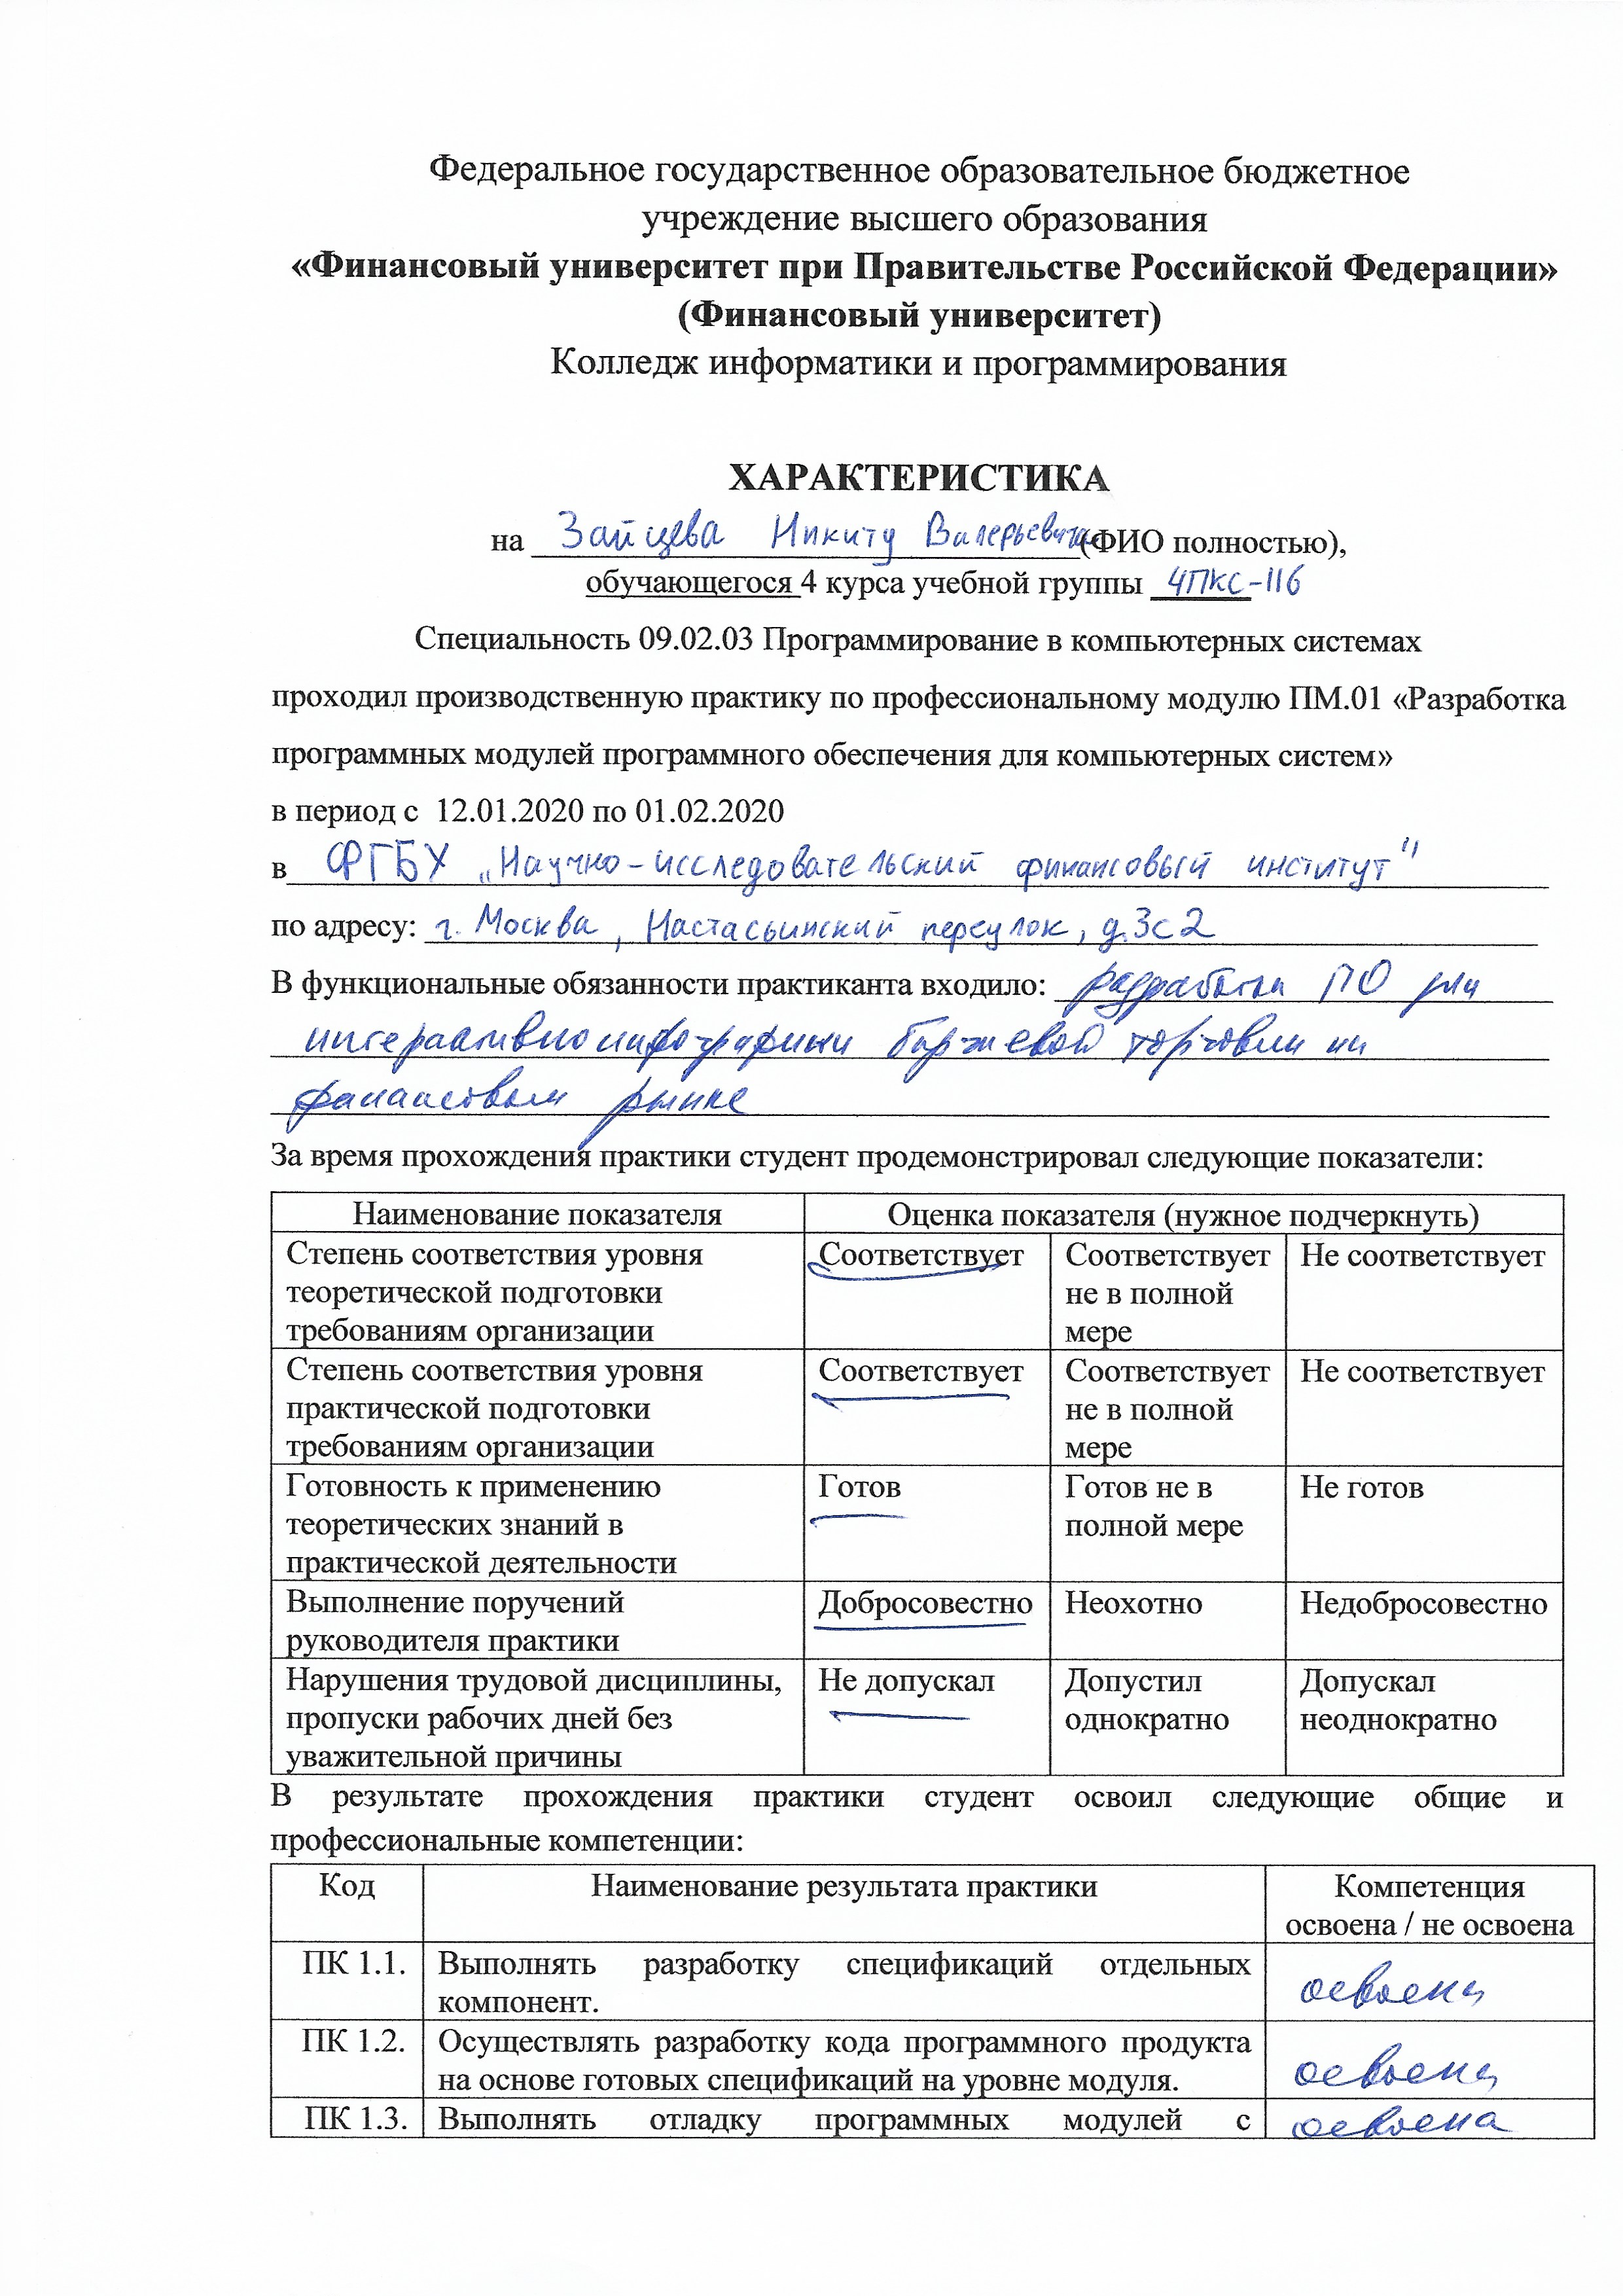 Федеральное государственное образовательное бюджетное
учреждение высшего образования
«Финансовый университет при Правительстве Российской Федерации»
(Финансовый университет)
Колледж информатики и программирования
ХАРАКТЕРИСТИКА
на Зайцева Никиту Валерьевича (ФИО полностью),
обучающегося 4 курса учебной группы 4ПКС-116
Специальность 09.02.03 Программирование в компьютерных системах
проходил производственную практику по профессиональному модулю ПМ.01 «Разработка
программных модулей программного обеспечения для компьютерных систем»
в период с 12.01.2020 по 01.02.2020
в ФГБУ „Научно-исследовательский финансовый институт"
по адресу: г. Москва, Настасьинский переулок, д.3с2
В функциональные обязанности практиканта входило: ПО для
биржевой торговли на
финансовом рынке
За время прохождения практики студент продемонстрировал следующие показатели:
Наименование показателя Оценка показателя (нужное подчеркнуть)
Степень соответствия уровня Соответствует Соответствует Не соответствует
теоретической подготовки не в полной
требованиям организации мере
Степень соответствия уровня Соответствует Соответствует Не соответствует
практической подготовки не в полной
требованиям организации мере
Готовность к применению Готов Готов не в Не готов
теоретических знаний в полной мере
практической деятельности
Выполнение поручений Добросовестно Неохотно Недобросовестно
руководителя практики
Нарушения трудовой дисциплины, Не допускал Допустил Допускал
пропуски рабочих дней без однократно неоднократно
уважительной причины
В результате прохождения практики студент освоил следующие общие и
профессиональные компетенции:
Код Наименование результата практики Компетенция
освоена / не освоена
ПК 1.1. Выполнять разработку спецификаций отдельных освоена
компонент.
ПК 1.2. Осуществлять разработку кода программного продукта освоена
на основе готовых спецификаций на уровне модуля.
ПК 1.3. Выполнять отладку программных модулей с освоена